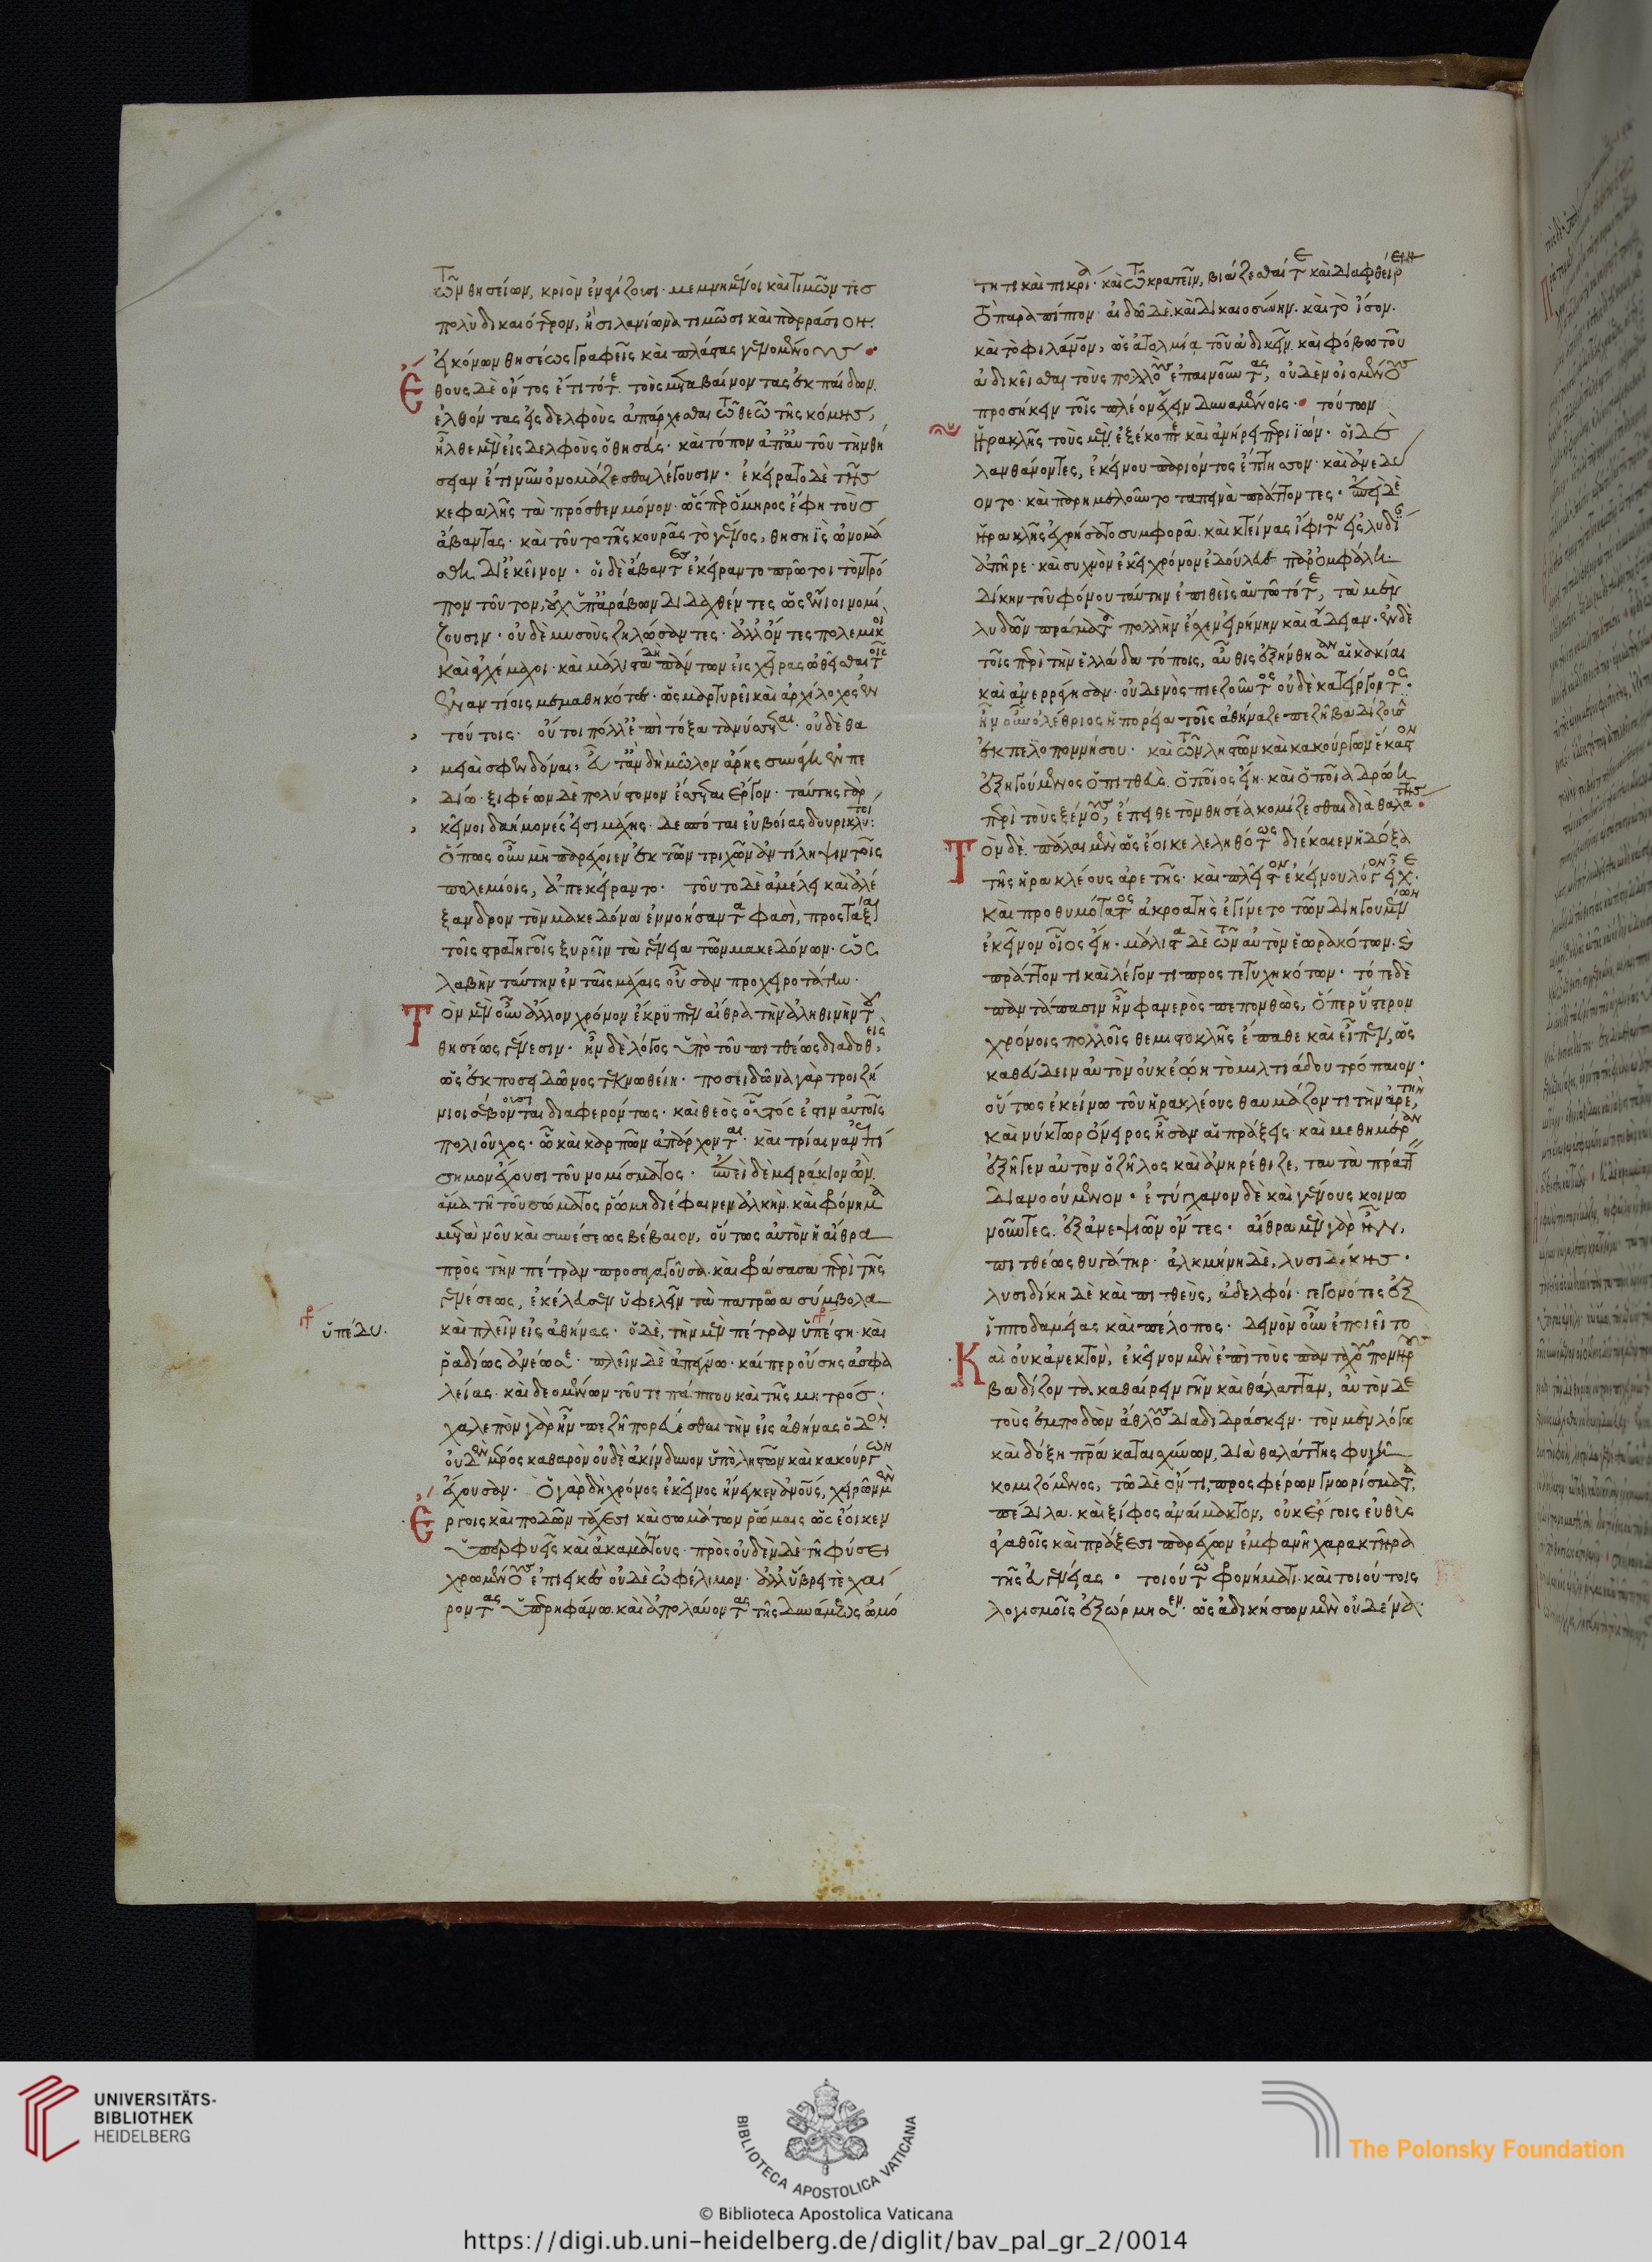 τῶν θησείων, κριὸν ἐναγίζουσι· μεμνημένοι καὶ τιμῶντες
πολὺ δικαιότερον, ἢ σιλανίωνα τιμῶσι καὶ παρράσιον·
εἰκόνων θησέως γραφεῖς καὶ πλάστας γενομένους·
Ἔθους δὲ ὄντος ἔτι τότε τοὺς μεταβαίνοντας ἐκ παίδων.
ἐλθόντας εἰς δελφοὺς ἀπάρχεσθαι τῷ θεῷ τῆς κόμης,
ἦλθε μὲν εἰς δελφοὺς ὁ θησεύς· καὶ τόπον ἀπ' αὐτοῦ τὴν θη
σείαν ἔτι νῦν ὀνομάζεσθαι λέγουσιν· ἐκείρατο δὲ τῆς
κεφαλῆς τὰ πρόσθεν μόνον· ὥσπερ ὅμηρος ἔφη τοὺς
ἄβαντας· καὶ τοῦτο τῆς κουρᾶς τὸ γένος, θησηῒς ὠνομά
σθη δι' ἐκεῖνον· οἱ δὲ ἄβαντες ἐκείραντο πρῶτοι τὸν τρό
πον τοῦτον, οὐχ ὑπ' ἀράβων διδαχθέντες ὡς ἔνιοι νομί
ζουσιν· οὐδὲ μυσοὺς ζηλώσαντες· ἀλλ' ὄντες πολεμικοὶ
καὶ ἀγχέμαχοι· καὶ μάλιστα δὴ πάντων εἰς χεῖρας ὠθεῖσθαι τοῖς
ἐναντίοις μεμαθηκότες· ὡς μαρτυρεῖ καὶ ἀρχίλοχος ἐν
τούτοις· οὔτοι πόλλ' ἐπὶ τόξα τανύσσεται· οὐδὲ θα
μειαὶ σφενδόναι, εὖτ' ἂν δὴ μῶλον ἄρης συνάγῃ ἐν πε
δίω· ξιφέων δὲ πολύστονον ἔσσεται ἔργον· ταύτης γὰρ
κεῖνοι δαήμονές εἰσι μάχης· δεσπόται εὐβοίας δουρικλυτοί:
Ὅπως οὖν μὴ παρέχοιεν ἐκ τῶν τριχῶν ἀντίληψιν τοῖς
πολεμίοις, ἀπεκείραντο· τοῦτο δὲ ἀμέλει καὶ ἀλέ
ξανδρον τὸν μακεδόνα ἐννοήσαντα φασὶ, προστάξαι
τοῖς στρατηγοῖς ξυρεῖν τὰ γένεια τῶν μακεδόνων· ὡς
λαβὴν ταύτην ἐν ταῖς μάχαις οὖσαν προχειροτάτην·
Τὸν μὲν οὖν ἄλλον χρόνον ἔκρυπτεν αἴθρα τὴν ἀληθινὴν τοῦ
θησέως γένεσιν· ἦν δὲ λόγος ὑπὸ τοῦ πιτθέως διαδοθεὶς,
ὡς ἐκ ποσειδῶνος τεκνωθείη· ποσειδῶνα γὰρ τροιζή
νιοι σέβονται διαφερόντως· καὶ θεὸς οὗτός ἐστιν αὐτοῖς
πολιοῦχος· ᾧ καὶ καρπῶν ἀπάρχονται· καὶ τρίαιναν ἐπί
σημον ἔχουσι τοῦ νομίσματος· ἐπεὶ δὲ μειράκιον ὢν.
ἅμα τῇ τοῦ σώματος ῥώμῃ διέφαινεν ἀλκὴν. καὶ φρόνημα
μετὰ νοῦ καὶ συνέσεως βέβαιον, οὕτως αὐτὸν ἡ αἴθρα
πρὸς τὴν πέτραν προσαγαγοῦσα. καὶ φράσασα περὶ τῆς
γενέσεως, ἐκέλευσεν ὑφελεῖν τὰ πατρῷα σύμβολα
καὶ πλεῖν εἰς ἀθήνας· ὁ δὲ, τὴν μὲν πέτραν ὑπέστη· καὶ
ὑπέδυ.
ῥαδίως ἀνέωσε· πλεῖν δὲ ἀπείπω· καίπερ οὔσης ἀσφα
λείας· καὶ δεομένων τοῦ τε πάππου καὶ τῆς μητρός·
χαλεπὸν γὰρ ἦν πεζῇ πορεύεσθαι τὴν εἰς ἀθήνας ὁδὸν.
οὐδὲν μέρος καθαρὸν οὐδὲ ἀκίνδυνον ὑπὸ ληστῶν καὶ κακούργων
ἔχουσαν· Ὁ γὰρ δὴ χρόνος ἐκεῖνος ἤνεγκεν ἀν̅ο̅υς, χειρῶν μὲν
Ἔργοις καὶ ποδῶν τάχεσι καὶ σωμάτων ῥώμαις ὡς ἔοικεν
ὑπερφυεῖς καὶ ἀκαμάτους· πρὸς οὐδὲν δὲ τῇ φύσει
χρωμένους ἐπιεικὲς οὐδὲ ὠφέλιμον· ἀλλ' ὕβρει τὲ χαί
ροντας ὑπερηφάνω. καὶ ἀπολαύοντας τῆς δυνάμεως ὠμό
τητι καὶ πικρίᾳ· καὶ τῷ κρατεῖν, βιάζεσθαί τε καὶ διαφθείρειν
τὸ παραπίπτον· αἰδῶ δὲ. καὶ δικαιοσύνην· καὶ τὸ ἴσον·
καὶ τὸ φιλάν̅ο̅ν, ὡς ἀτολμίᾳ τοῦ ἀδικεῖν. καὶ φόβω τοῦ
ἀδικεῖσθαι τοὺς πολλοὺς ἐπαινοῦντας, οὐδὲν οἰομένους
προσήκειν τοῖς πλέον ἔχειν δυναμένοις· τούτων
Ἡρακλῆς τοὺς μὲν ἐξέκοπτε καὶ ἀνήρει περιϊών· οἱ δὲ
λανθάνοντες, ἐκείνου παριόντος ἔπτησσον· καὶ ἀνεδύ
οντο· καὶ παρημελοῦντο ταπεινὰ πράττοντες· ἐπεὶ δὲ
Ἡρακλῆς ἐχρήσατο συμφορᾷ. καὶ κτείνας ἴφιτον εἰς λυδίαν
ἀπῆρε· καὶ συχνὸν ἐκεῖ χρόνον ἐδούλευε παρ' ὀμφάλῃ·
δίκην τοῦ φόνου ταύτην ἐπιθεὶς αὑτῷ τότε, τὰ μὲν
λυδῶν πράγματα πολλὴν ἔσχεν εἰρήνην καὶ ἄδειαν· ἐν δὲ
τοῖς περὶ τὴν ἑλλάδα τόποις, αὖθις ἐξήνθησαν αἱ κακίαι
καὶ ἀνερράγησαν· οὐδενὸς πιεζοῦντος οὐδὲ κατείργοντος·
ἦν οὖν ὀλέθριος ἡ πορεία τοῖς ἀθήναζε πεζῇ βαδίζουσιν
ἐκ πελοποννήσου· καὶ τῶν ληστῶν καὶ κακούργων ἕκαστον
ἐξηγούμενος ὁ πιτθεὺς. ὁποῖος εἴη· καὶ ὁποῖα δρῴη
περὶ τοὺς ξένους, ἔπειθε τὸν θησέα κομίζεσθαι διὰ θαλάττης·
Τὸν δὲ. πάλαι μὲν ὡς ἔοικε λεληθότως διέκαιεν ἡ δόξα
τῆς ἡρακλέους ἀρετῆς· καὶ πλεῖστον ἐκείνου λόγον εἶχε·
καὶ προθυμότατος ἀκροατὴς ἐγίνετο τῶν διηγουμένων
ἐκεῖνον οἷος εἴη· μάλιστα δὲ τῶν αὐτὸν ἑωρακότων· καὶ
πράττοντι καὶ λέγοντι προστετυχηκότων· τότε δὲ
παντάπασιν ἦν φανερὸς πεπονθὼς, ὅπερ ὕστερον
χρόνοις πολλοῖς θεμιστοκλῆς ἔπαθε καὶ εἶπεν, ὡς
καθεύδειν αὐτὸν οὐκ ἐῴη τὸ μιλτιάδου τρόπαιον·
οὕτως ἐκείνω τοῦ ἡρακλέους θαυμάζοντι τὴν ἀρετὴν,
καὶ νύκτωρ ὄνειρος ἦσαν αἱ πράξεις· καὶ μεθημέραν
ἐξῆγεν αὐτὸν ὁ ζῆλος καὶ ἀνηρέθιζε, ταυτὰ πράττειν
διανοούμενον· ἐτύγχανον δὲ καὶ γένους κοινω
νοῦντες. ἐξ ἀνεψιῶν ὄντες· αἴθρα μὲν γὰρ ἦν,
πιτθέως θυγάτηρ· ἀλκμήνη δὲ, λυσιδίκης·
λυσιδίκη δὲ καὶ πιτθεὺς, ἀδελφοί· γεγονότες ἐξ
ἱπποδαμείας καὶ πέλοπος· δεινὸν οὖν ἐποιεῖτο
Καὶ οὐκ ἀνεκτὸν, ἐκεῖνον μὲν ἐπὶ τοὺς πανταχοῦ πονηροὺς
βαδίζοντα. καθαίρειν γῆν καὶ θάλατταν, αὑτὸν δὲ
τοὺς ἐμποδὼν ἄθλους διαδιδράσκειν· τὸν μὲν λόγω
καὶ δόξῃ πρα καταισχύνων, διὰ θαλάττης φυγῇ
κομιζόμενος, τῷ δὲ ὄντι, προσφέρων γνωρίσματα,
πέδιλα· καὶ ξίφος ἀναίμακτον, οὐκ ἔργοις εὐθὺς
ἀγαθοῖς καὶ πράξεσι παρέχων ἐμφανῆ χαρακτῆρα
τῆς εὐγενείας· τοιούτω φρονήματι· καὶ τοιούτοις
λογισμοῖς ἐξώρμησεν· ὡς ἀδικήσων μὲν οὐδένα·
UNIVERSITÄTS-
BIBLIOTHEK
HEIDELBERG
BIBLIOTECA APOSTOLICA VATICANA
The Polonsky Foundation
© Biblioteca Apostolica Vaticana
https://digi.ub.uni-heidelberg.de/diglit/bav_pal_gr_2/0014